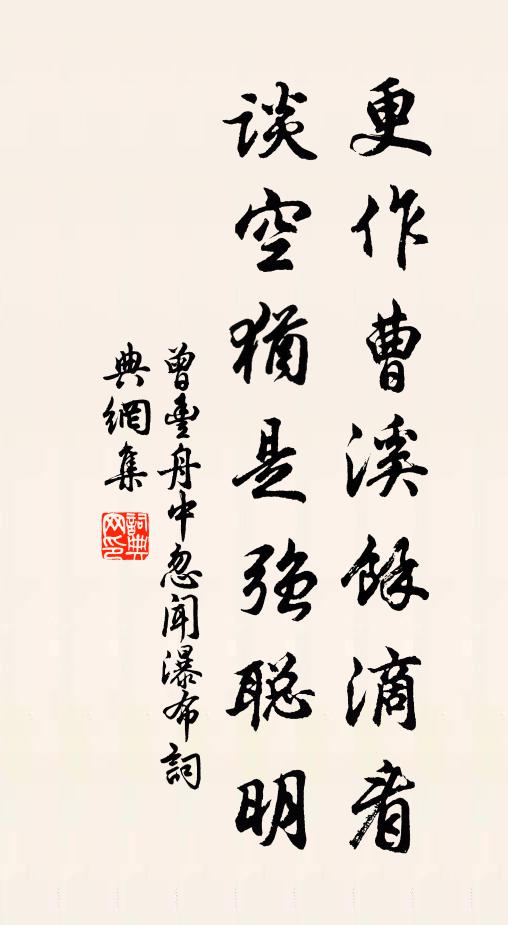 更作曹溪餘滴看
谈空猶是强聪明
曾豊舟中忽闻瀑布詞
典網集
詞典网印